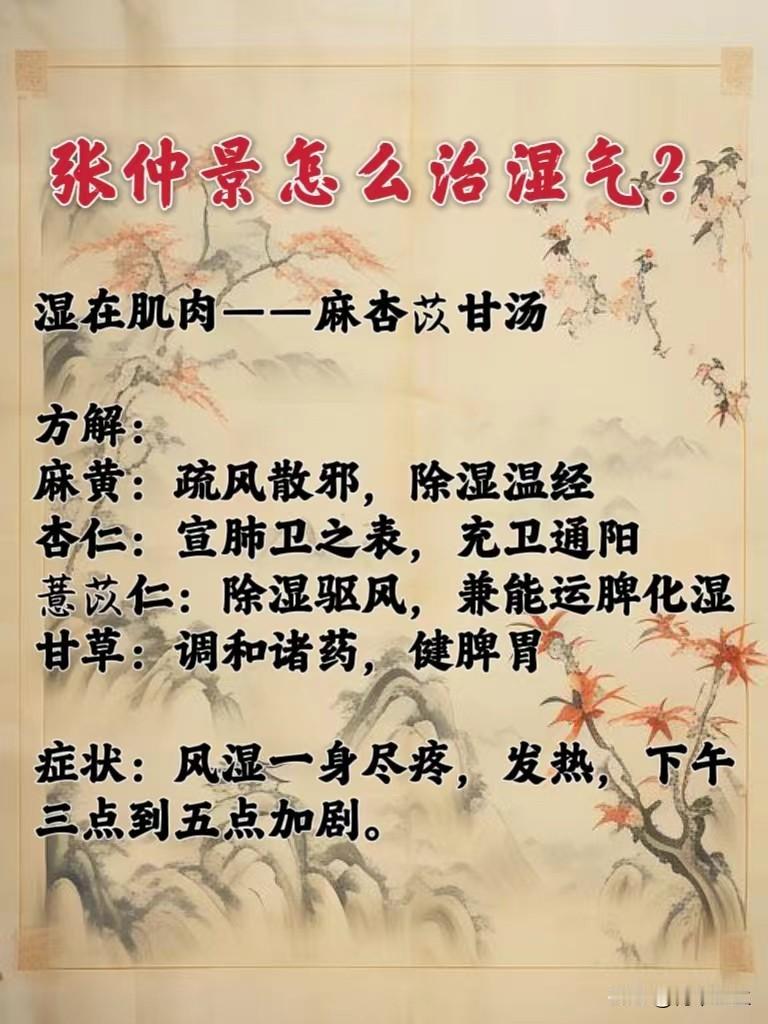 张仲景怎么治湿气?
湿在肌肉———麻杏苡甘汤
方解:
麻黄:疏风散邪,除湿温经
杏仁:宣肺卫之表,充卫通阳
薏苡仁:除湿驱风,兼能运脾化湿
甘草:调和诸药,健脾胃
症状:风湿一身尽疼,发热,下午
三点到五点加剧。